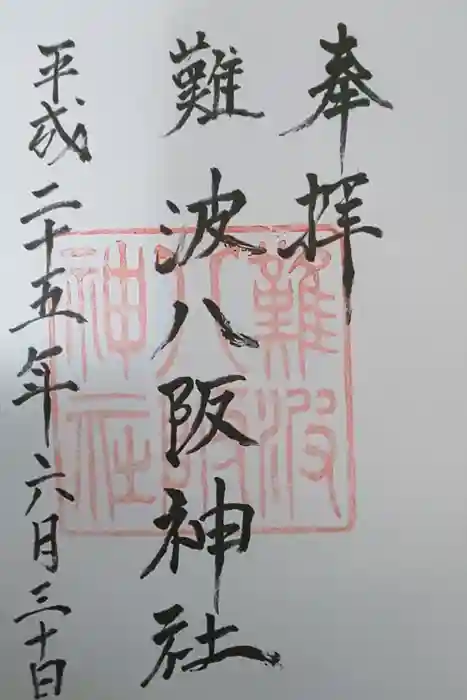 奉拝
難波八阪神社
平成二十五年六月三十日
難波
八阪
神社